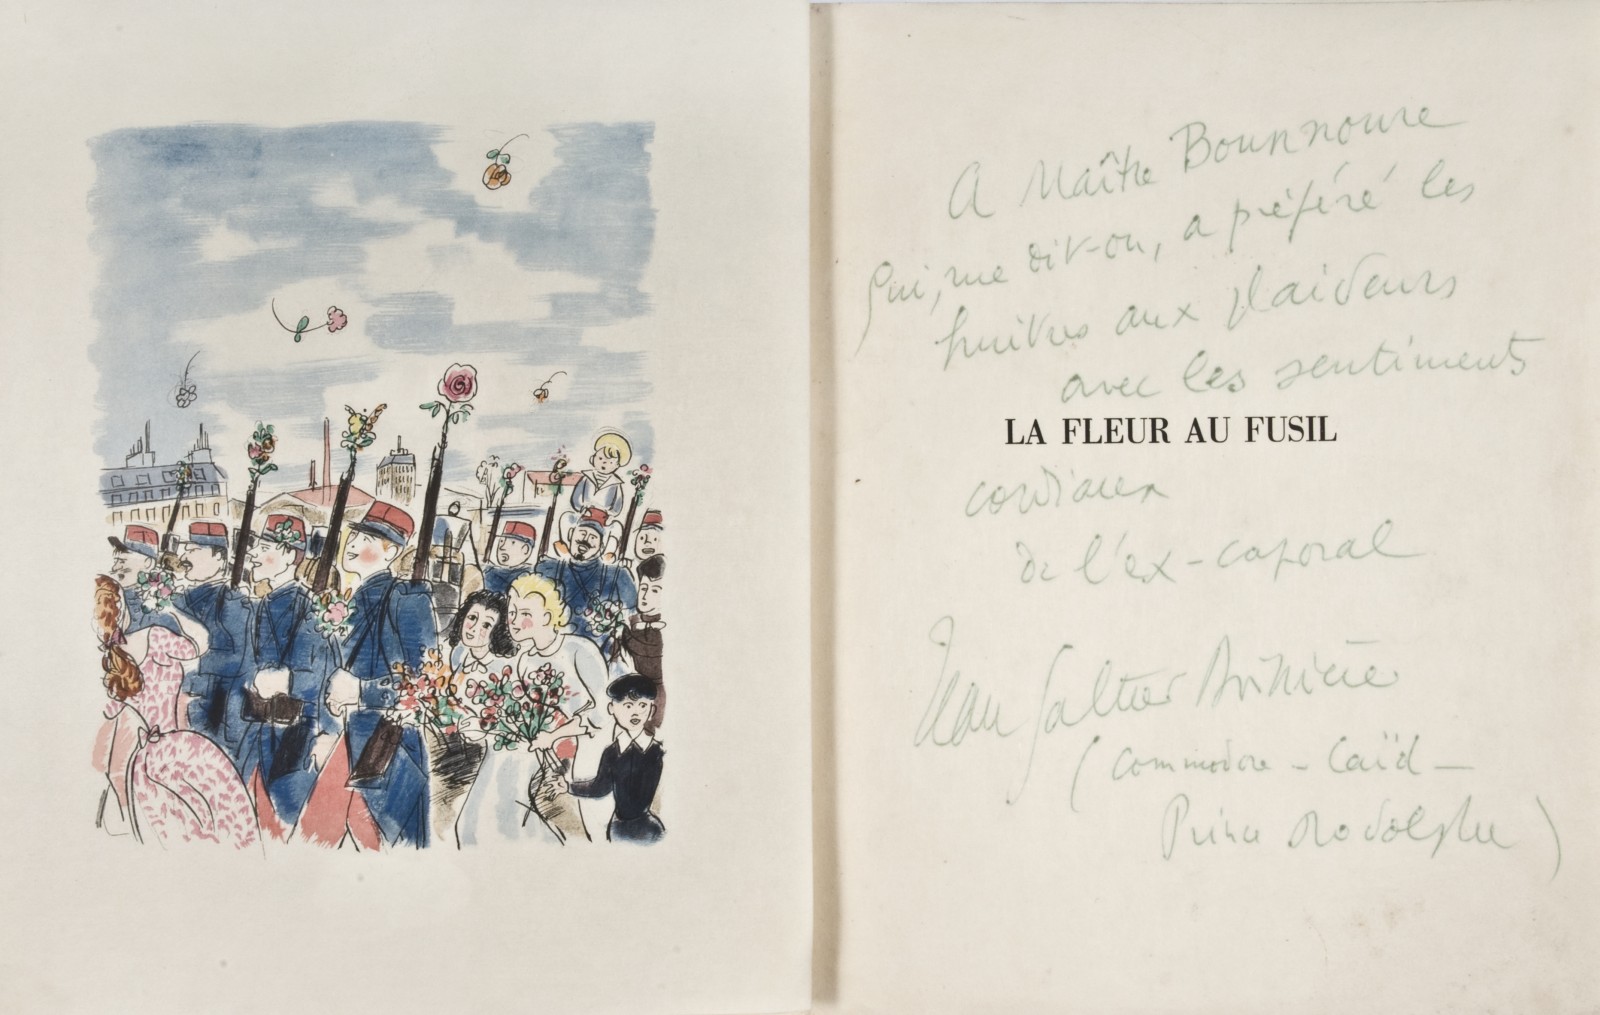 A Maître Bournoure
qui, me dit-on, a préféré les
huitres aux plaideurs
avec les sentiments
LA FLEUR AU FUSIL
cordiaux
de l'ex-caporal
Jean Galtier Boissière
(Commodore - Caïd -
Prince Rodolphe)